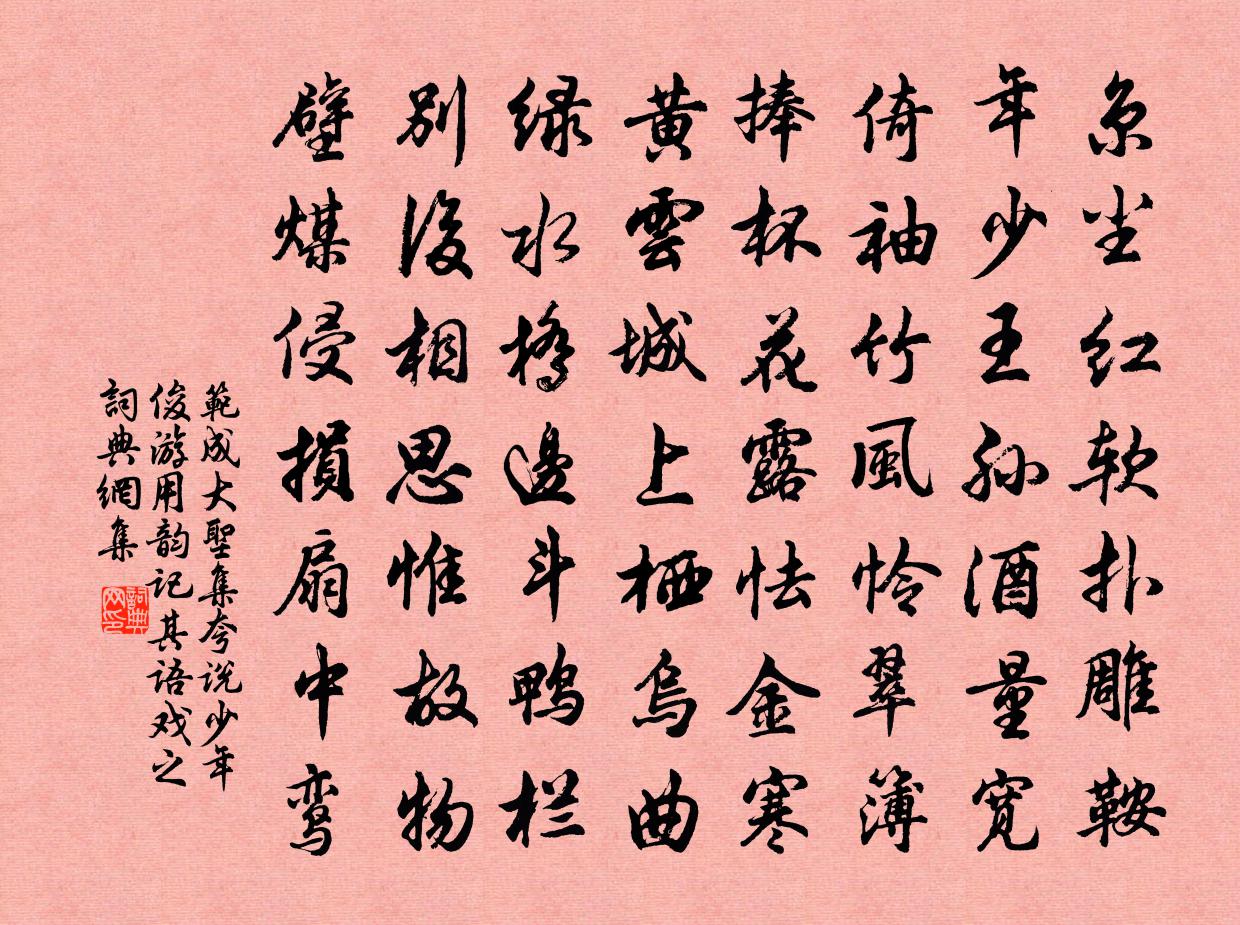 京尘红软扑雕鞍
年少王孙酒量宽
倚袖竹風怜翠簿
捧杯花露怯金寒
黄雲城上栖烏曲
绿水橋邊斗鸭栏
别後相思惟故物
壁煤侵損扇中鸾
範成大聖集夸说少年
俊游用韵记其语戏之
詞典網集
詞典网印